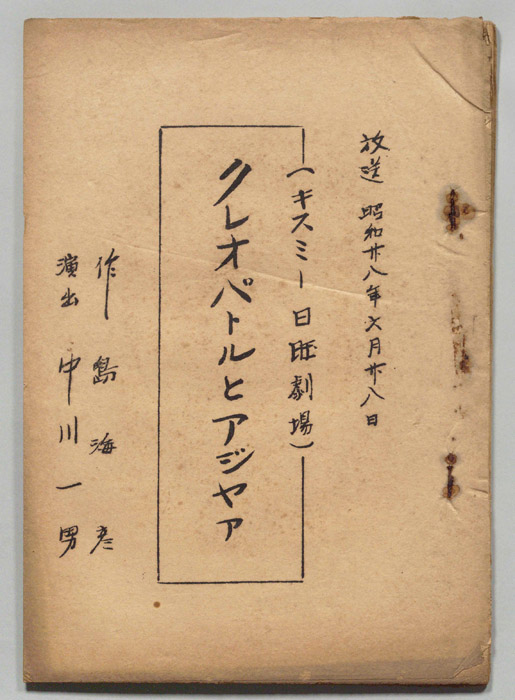 放送 昭和廿八年六月廿八日
(キスミー日旺劇場)
クレオパトルとアジヤア
作 島 海彦
演出 中川一男